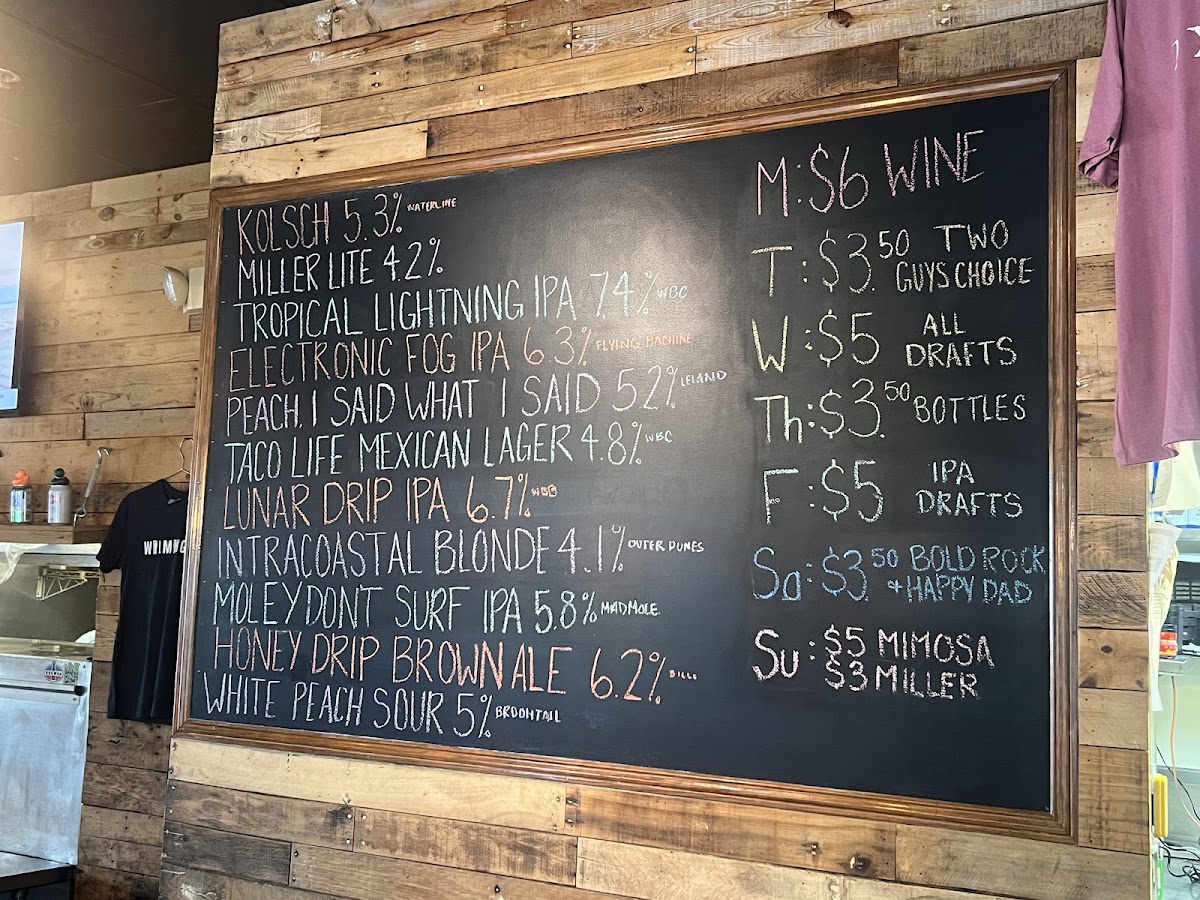 KOLSCH 5.3% WATERLINE
MILLER LITE 4.2%
TROPICAL LIGHTNING IPA 7.4% WBC
ELECTRONIC FOG IPA 6.3% FLYING MACHINE
PEACH, I SAID WHAT I SAID 5.2% LELAND
TACO LIFE MEXICAN LAGER 4.8% WBC
LUNAR DRIP IPA 6.7% WBC
INTRACOASTAL BLONDE 4.1% OUTER DUNES
MOLEY DONT SURF IPA 5.8% MAD MOLE
HONEY DRIP BROWN ALE 6.2% BILLS
WHITE PEACH SOUR 5% BROOMTAIL
M: $6 WINE
T: $3.50 TWO
GUYS CHOICE
W: $5 ALL
DRAFTS
Th: $3.50 BOTTLES
F: $5 IPA
DRAFTS
Sa: $3.50 BOLD ROCK
+ HAPPY DAD
Su: $5 MIMOSA
$3 MILLER